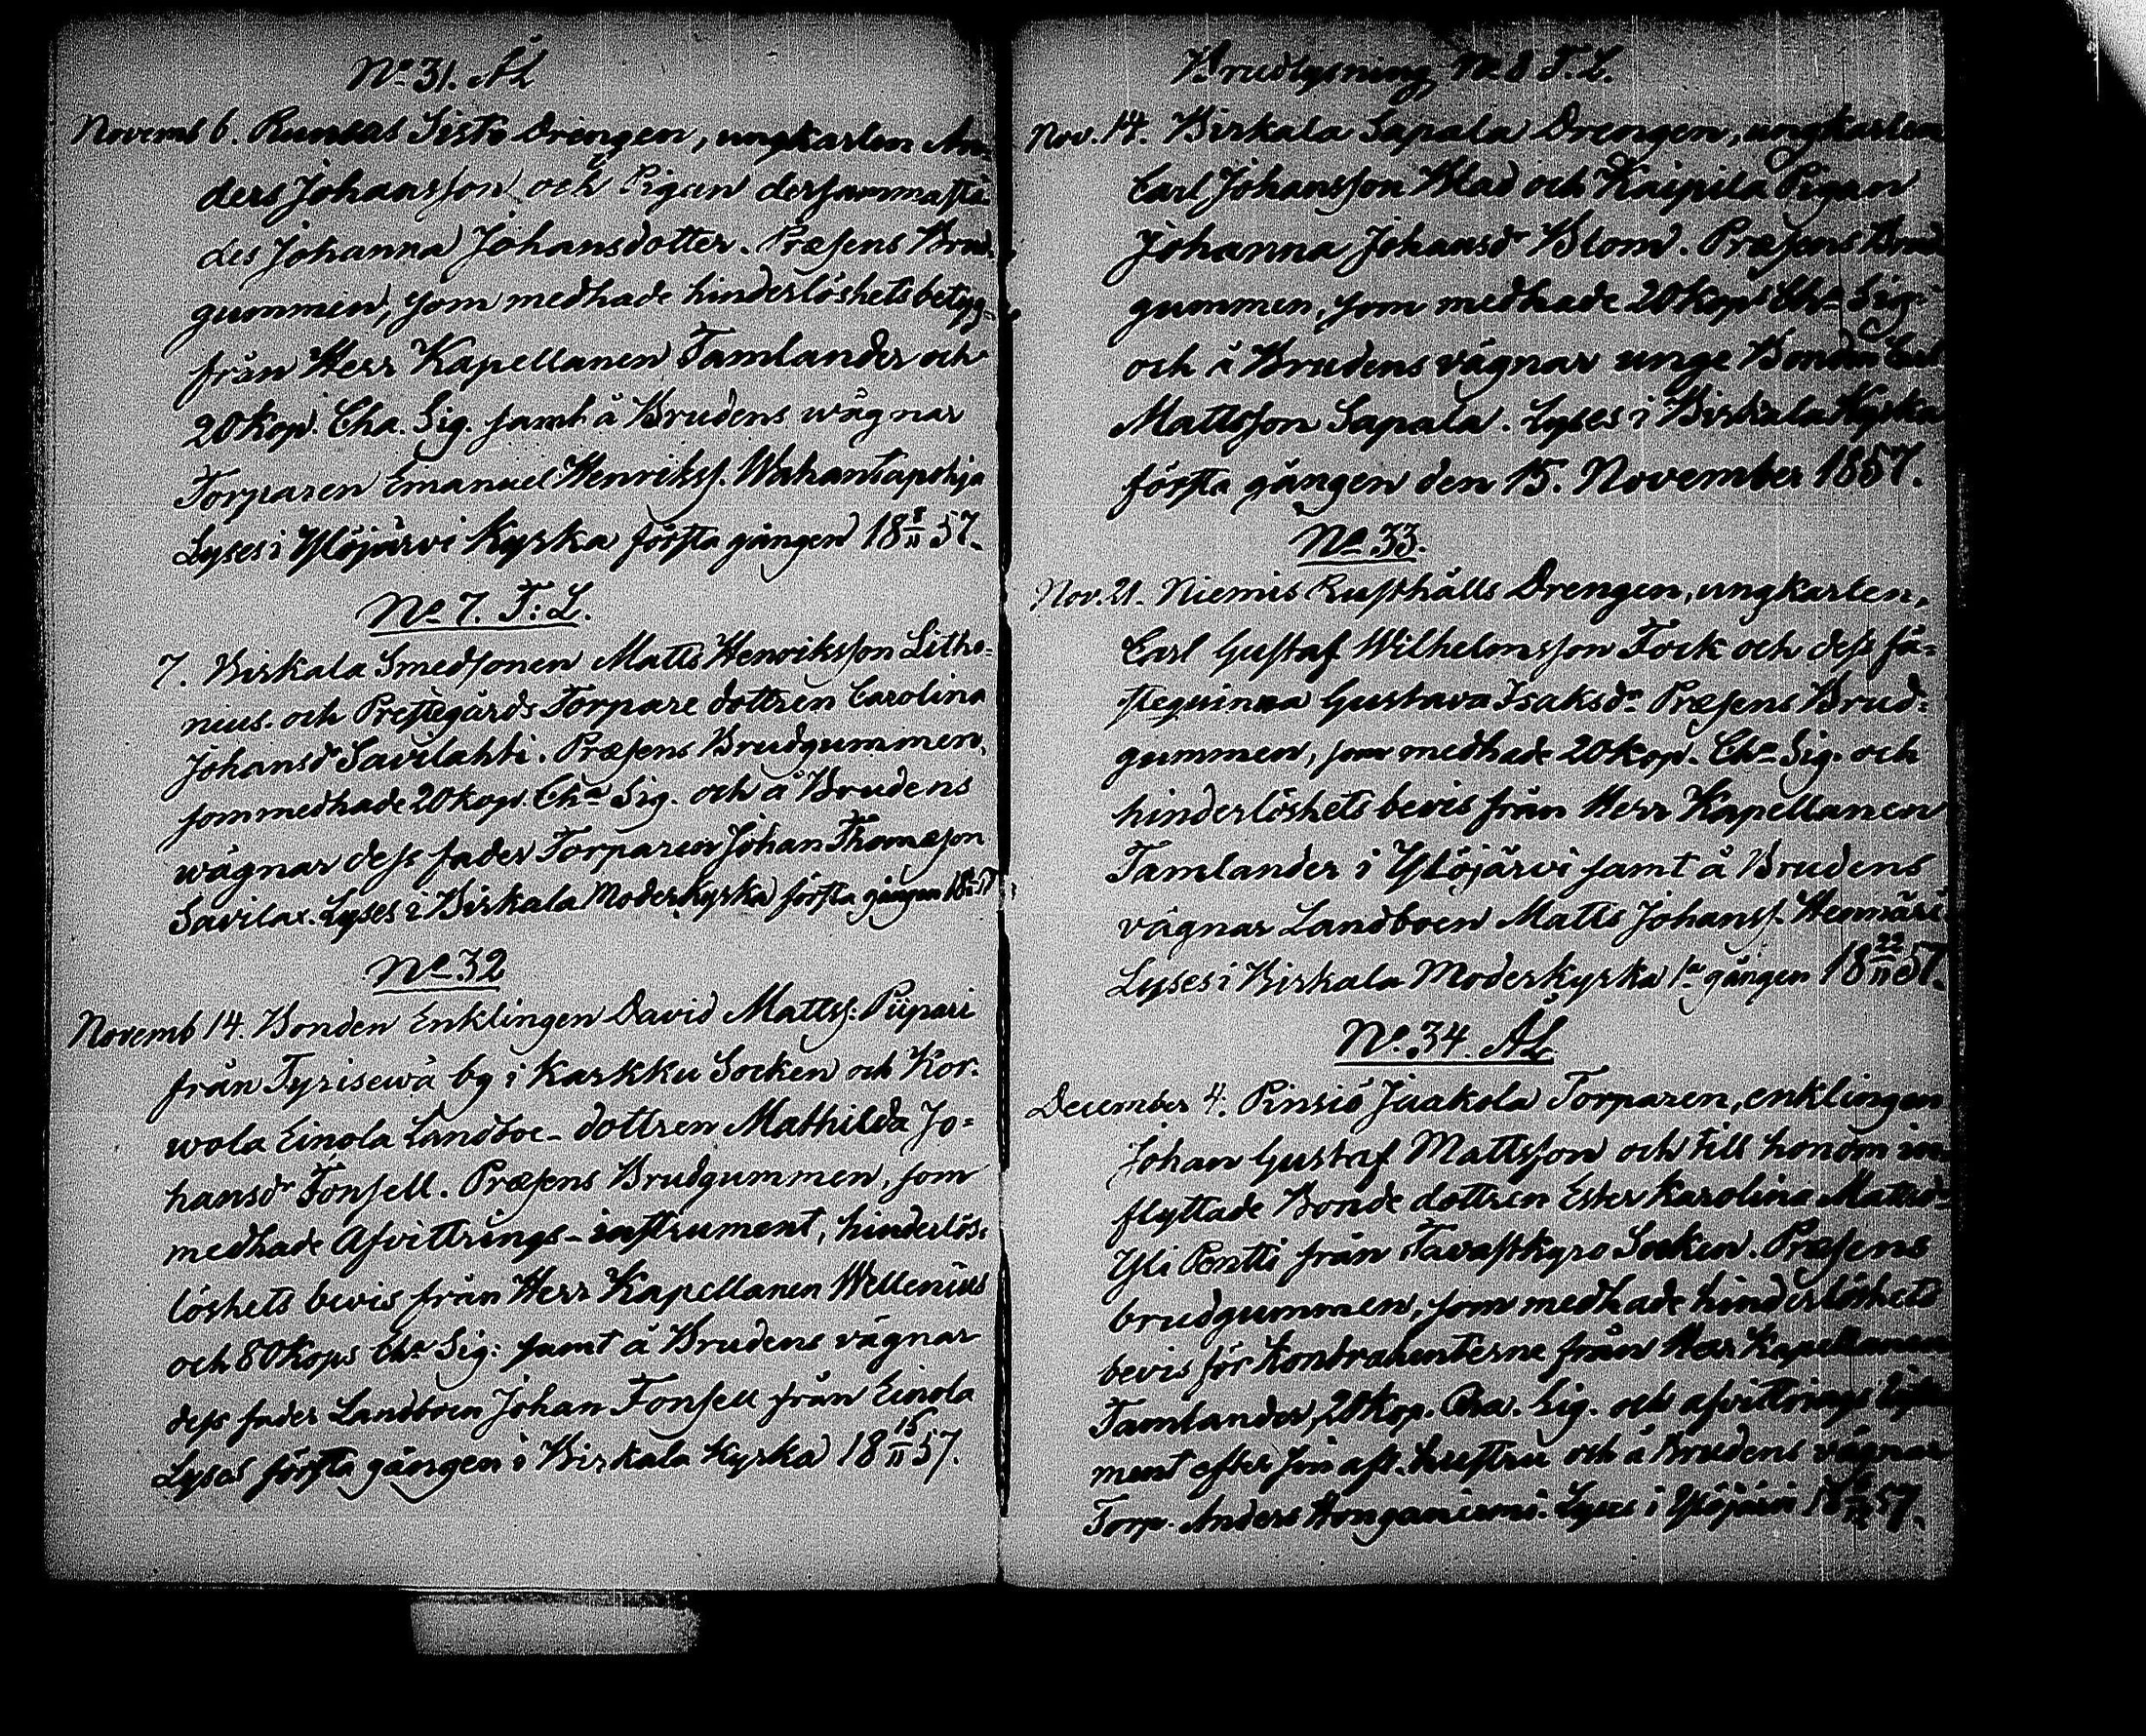 No 31. ÅL
Novemb 6. Runsas Sisto Drengen, ungkarlen An-
ders Johansson och Pigan dersammastä-
des Johanna Johansdotter. Præsens Brud-
gummen, som medhade hinderlöshets betyg
från Herr Kapellanen Tamlander och
20 kop. Cha. Sig. samt å Brudens wägnar
Torparen Emanuel Henrikss. Wahantapohja
Lyses i Ylöjärvi Kyrka första gången 18 8/11 57.
No 7. T: L.
7. Birkala Smedsonen Matts Henriksson Litho-
nius. och Prestegårds Torpare dottren Carolina
Johansdr Savilahti. Præsens Brudgummen,
som medhade 20 kop. Cha Sig. och å Brudens
wägnar dess fader Torparen Johan Thomæson
Savilax. Lyses i Birkala Moderkyrka första gången
No 32
Novemb 14. Bonden Enklingen David Mattss: Piipari
från Tyrisewä by i Karkku Socken och Kor-
wola Einola Landboe-dottren Mathilda Jo-
hansdr Fonsell. Præsens Brudgummen, som
medhade Afvittrings-instrument, hinderlös-
löshets bevis från Herr Kapellanen Wellenius
och 80 kops Cha Sig: samt å Brudens vägnar
dess fader Landboen Johan Fonsell från Einola
Lyses första gången i Birkala Kyrka 18 15/11 57.
Brudlysning No 8 T. L.
Nov. 14. Birkala Sapala Drengen, ungkarlen
Carl Johansson Blad och Kaipila Pigan
Johanna Johansdr Blom. Præsens Brud
gummen, som medhade 20 kops Cha Sig:
och å Brudens vägnar unge Bonden Carl
Mattsson Sapala. Lyses i Birkala Kyrka
första gången den 15. November 1857.
No 33.
Nov. 21. Niemis Rusthålls Drengen, ungkarlen,
Carl Gustaf Wilhelmsson Fock och dess fä-
steqvinna Gustava Isaksdr Præsens Brud-
gummen, som medhade 20 kop. Cha Sig. och
hinderlöshets bevis från Herr Kapellanen
Tamlander i Ylöjärvi samt å Brudens
vägnar Landboen Matts Johanss. Hennäri
Lyses i Birkala Moderkyrka 1a gången 18 22/11 57.
No. 34. ÅL
December 4. Pinsiö Juakola Torparen, enklingen
Johan Gustaf Mattsson och till honom in-
flyttade Bonde dottren Ester Karolina Mattsd-
Yli Pentti från Tavastkyro Socken. Præsens
brudgummen, som medhade hinderlöshets
bevis för kontrahenterne från Herr Kapellanen
Tamlander, 20 kop. Cha. Sig. och afvittrings
ment efter sin afl. hustru och å Brudens vägnar
Torp. Anders Honganiemi. Lyses i Ylöjärvi 18 6/12 57.